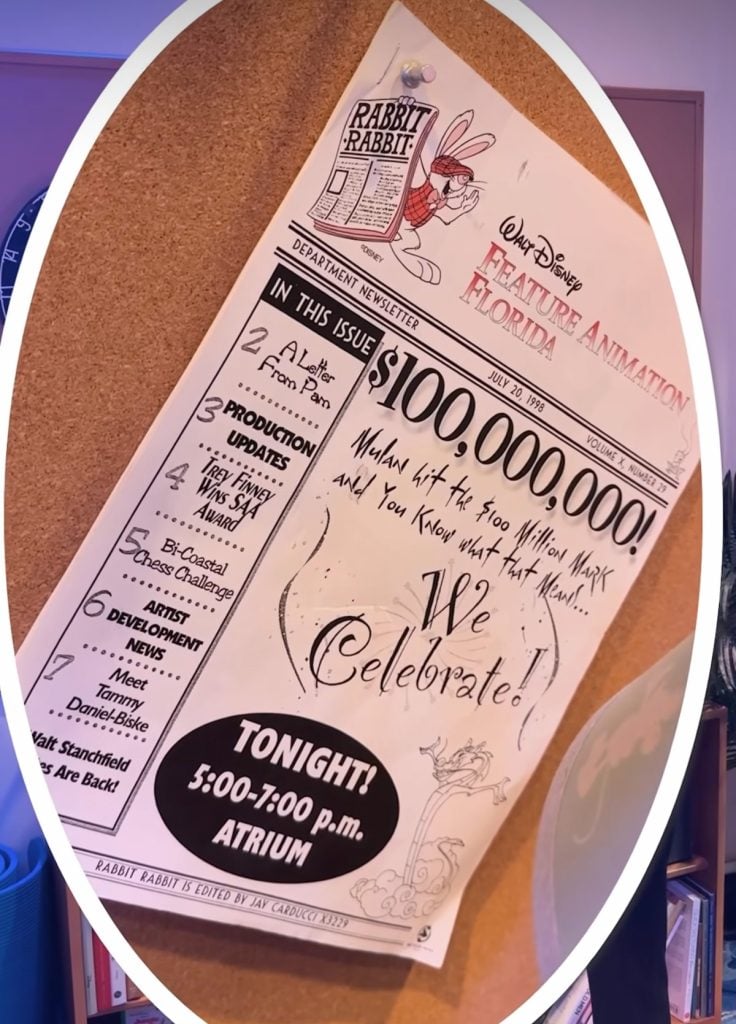 RABBIT
·RABBIT·
©DISNEY
WALT DISNEY
FEATURE ANIMATION
FLORIDA
DEPARTMENT NEWSLETTER
JULY 20, 1998
VOLUME X, NUMBER 29
IN THIS ISSUE
2 A Letter
From Pam
3 PRODUCTION
UPDATES
4 TREY FINNEY
WINS SAA
AWARD
5 Bi-Coastal
Chess Challenge
6 ARTIST
DEVELOPMENT
NEWS
7 Meet
Tammy
Daniel-Biske
Walt Stanchfield
es Are Back!
$100,000,000!
Mulan hit the $100 Million Mark
and You Know what that Means...
We
Celebrate!
TONIGHT!
5:00-7:00 p.m.
ATRIUM
RABBIT RABBIT IS EDITED BY JAY CARDUCCI X3229